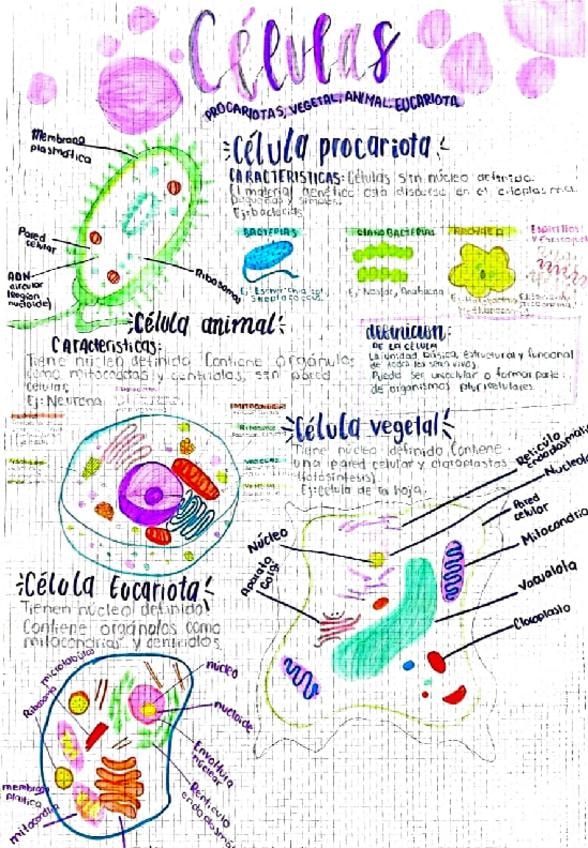 Células
PROCARIOTAS, VEGETAL, ANIMAL, EUCARIOTA
Célula procariota
CARACTERISTICAS: Células sin núcleo definido.
El material genético está disperso en el citoplasma.
pequeñas y simples.
Ej: bacterias
Membrana
plasmática
Pared
celular
ADN
circular
(región
nucleoide)
Ribosomas
BACTERIAS
Ej: Escherichia coli,
Streptococcus
CIANOBACTERIAS
Ej: Nostoc, Anabaena
ARCHAEA
Espirilos
Célula animal
Características:
Tiene núcleo definido. Contiene orgánulos
como mitocondrias y centriolos, sin pared
celular.
Ej: Neurona
definición:
DE LA CÉLULA
La unidad básica, estructural y funcional
de todos los seres vivos.
Puede ser unicelular o formar parte
de organismos pluricelulares.
Célula vegetal
Tiene núcleo definido. Contiene
una pared celular y cloroplastos
(fotosíntesis).
Ej: célula de la hoja.
Retículo
Nucleolo
Pared
celular
Mitocondria
Vacuola
Cloroplasto
Núcleo
Aparato
Golgi
Célula Eucariota
Tienen núcleo definido
Contiene orgánulos como
mitocondrias y centriolos.
microtúbulos
Ribosoma
núcleo
nucleoide
Envoltura
nuclear
Retículo
membrana
plastica
mitocondria